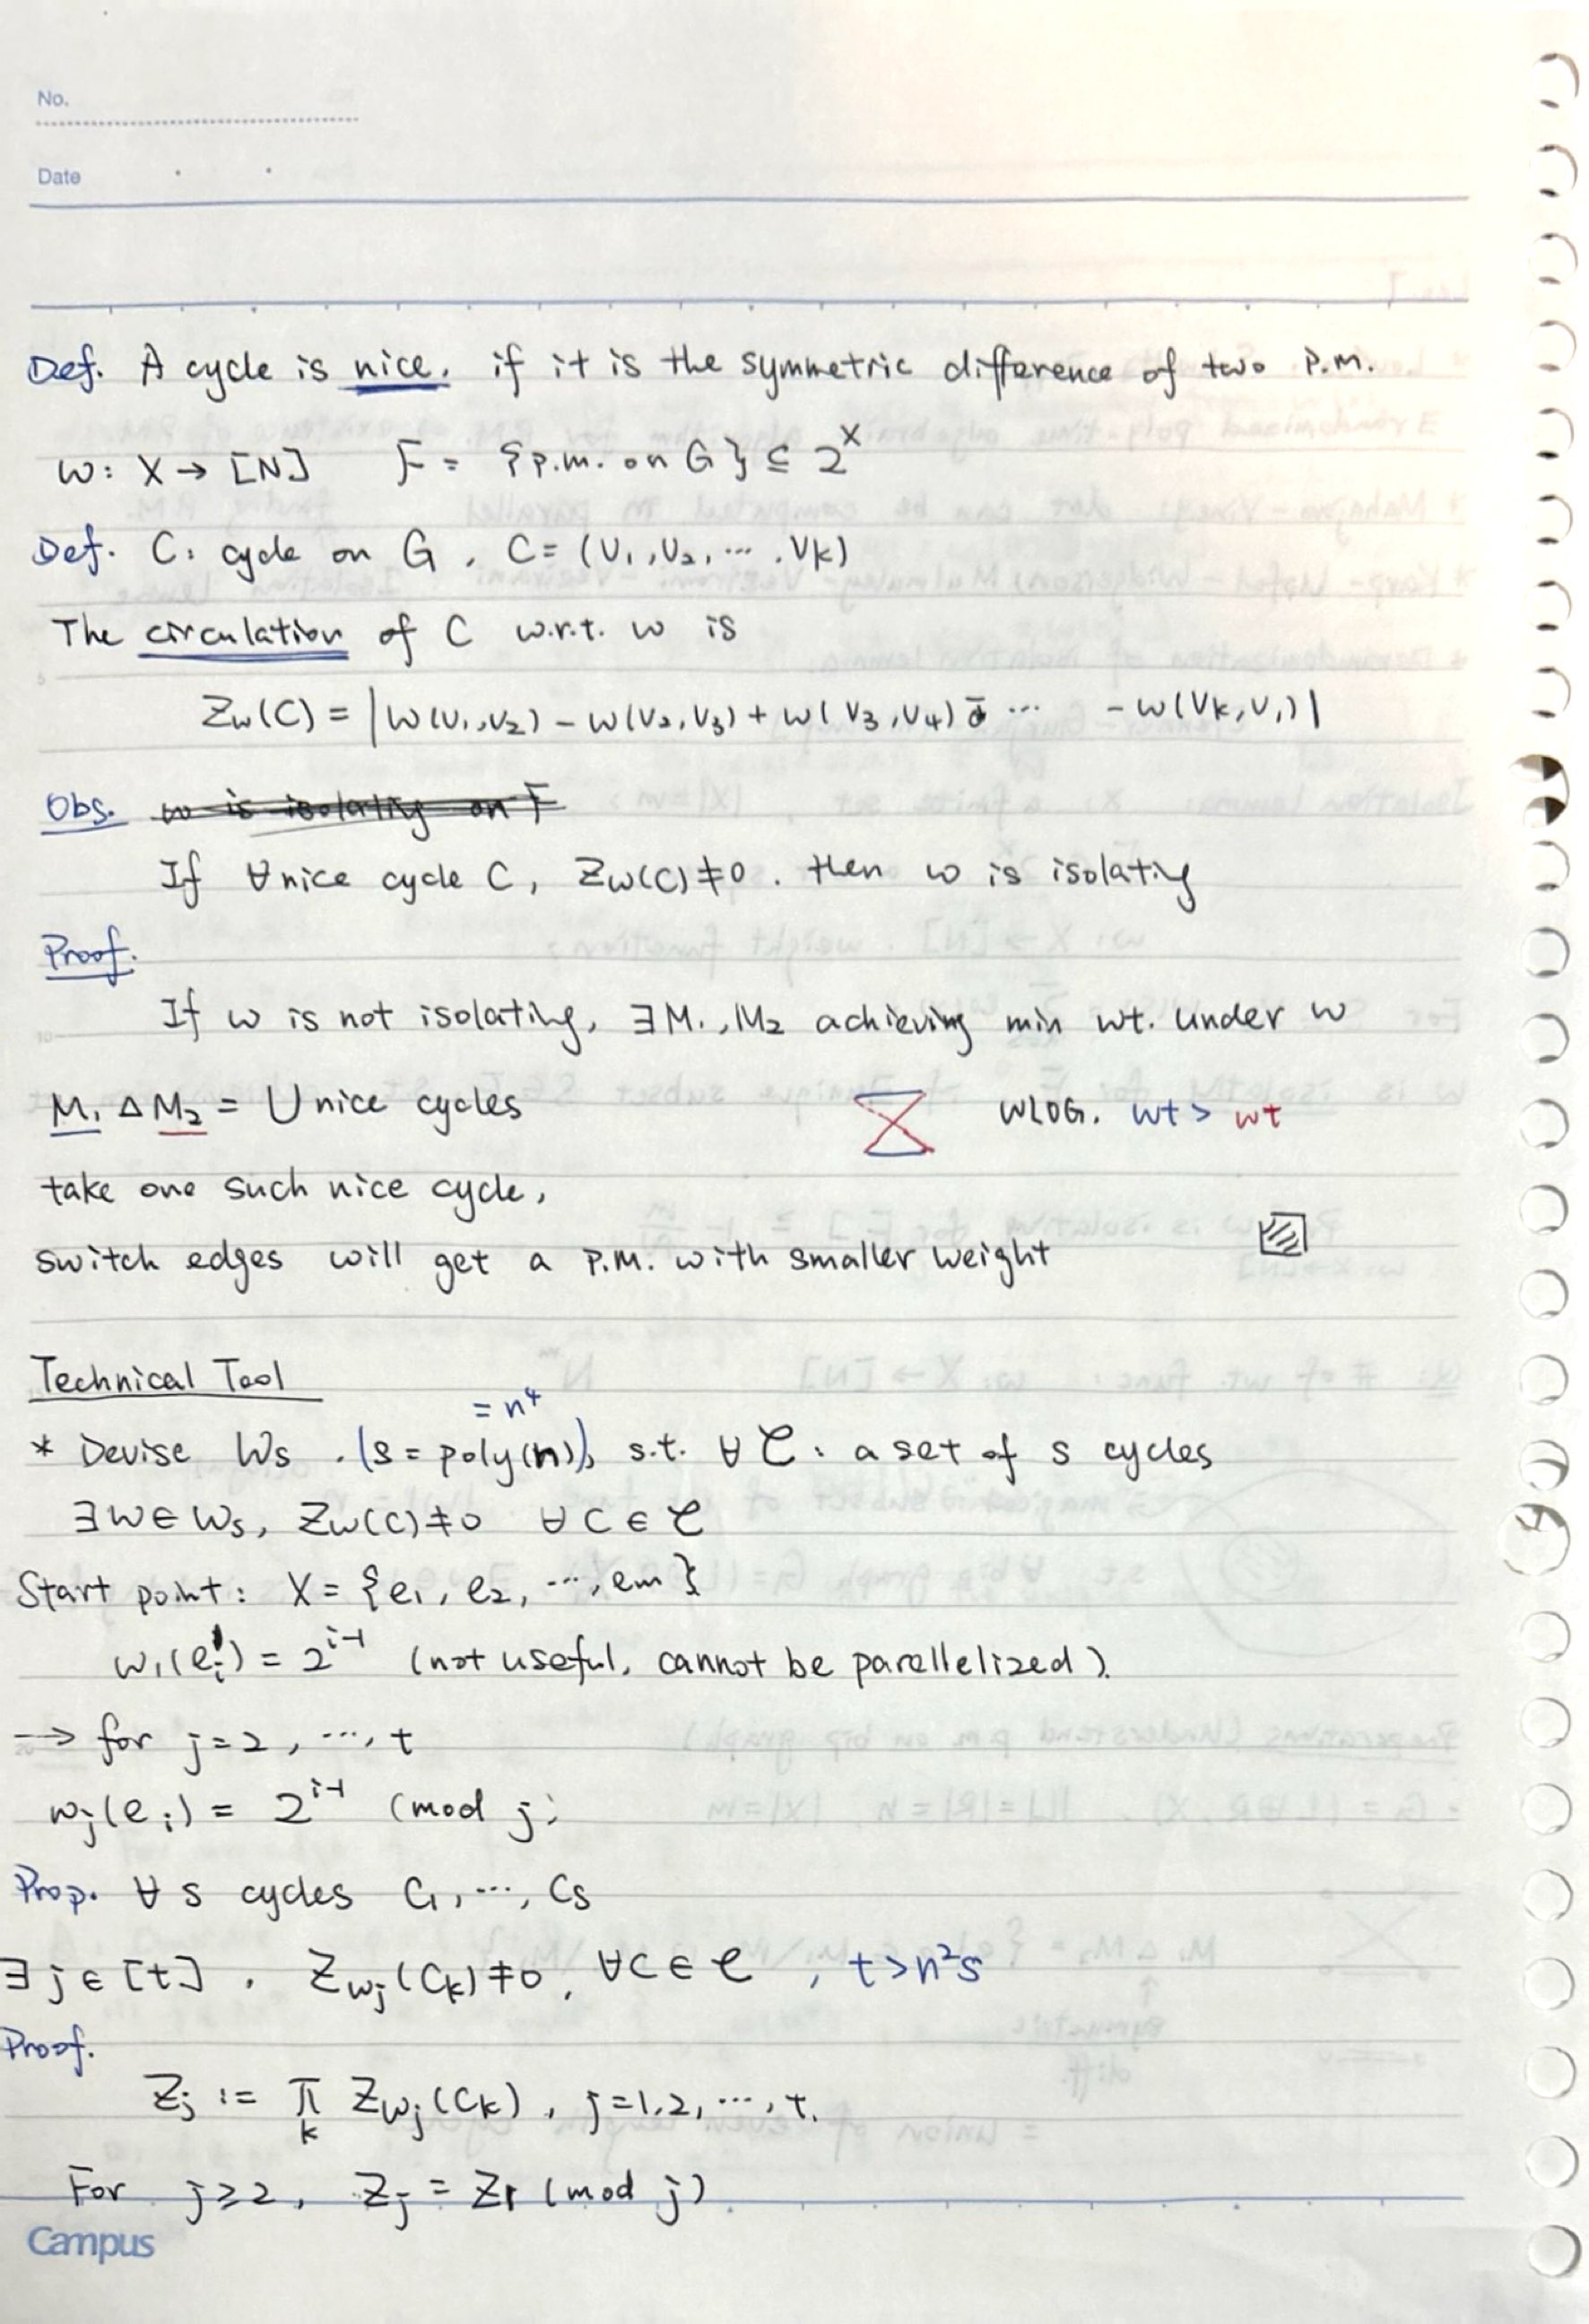 No.
Date
Def. A cycle is nice. if it is the symmetric difference of two P.M.
w: X → [N] F = {p.m. on G} ⊆ 2^X
Def. C: cycle on G, C = (v₁, v₂, ..., vₖ)
The circulation of C w.r.t. w is
Z_w(C) = |w(v₁,v₂) - w(v₂,v₃) + w(v₃,v₄) ... - w(vₖ,v₁)|
Obs. w is isolating on F
If ∀ nice cycle C, Z_w(C) ≠ 0. then w is isolating
Proof.
If w is not isolating, ∃ M₁, M₂ achieving min wt. under w
M₁ Δ M₂ = ∪ nice cycles WLOG. wt > wt
take one such nice cycle,
switch edges will get a P.M. with smaller weight
Technical Tool
= n⁴
* Devise Ws. (s = poly(n)), s.t. ∀ C: a set of s cycles
∃ w ∈ Ws, Z_w(C) ≠ 0 ∀ C ∈ C
Start point: X = {e₁, e₂, ..., em}
w₁(eᵢ) = 2^{i-1} (not useful, cannot be parallelized).
→ for j = 2, ..., t
wⱼ(eᵢ) = 2^{i-1} (mod j)
Prop. ∀ s cycles C₁, ..., Cs
∃ j ∈ [t]. Z_{wⱼ}(Cₖ) ≠ 0, ∀ C ∈ C, t > n²s
Proof.
Zⱼ := ∏ₖ Z_{wⱼ}(Cₖ), j = 1, 2, ..., t.
For j ≥ 2, Zⱼ = Z₁ (mod j)
Campus